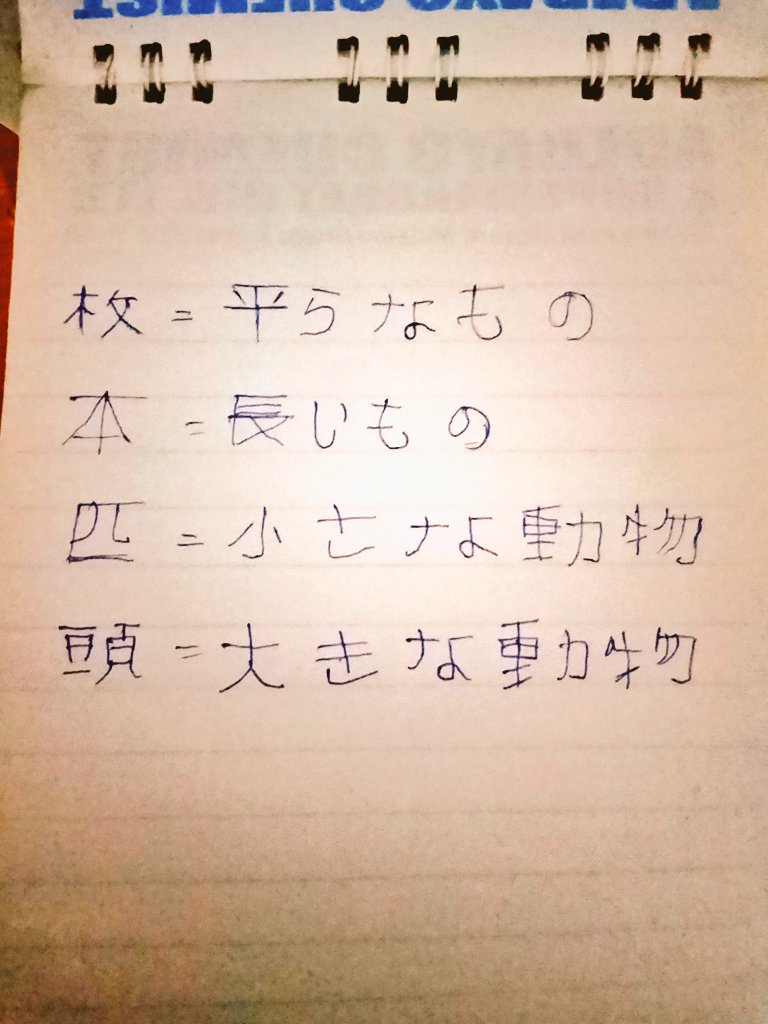 枚=平らなもの
本=長いもの
匹=小さな動物
頭=大きな動物